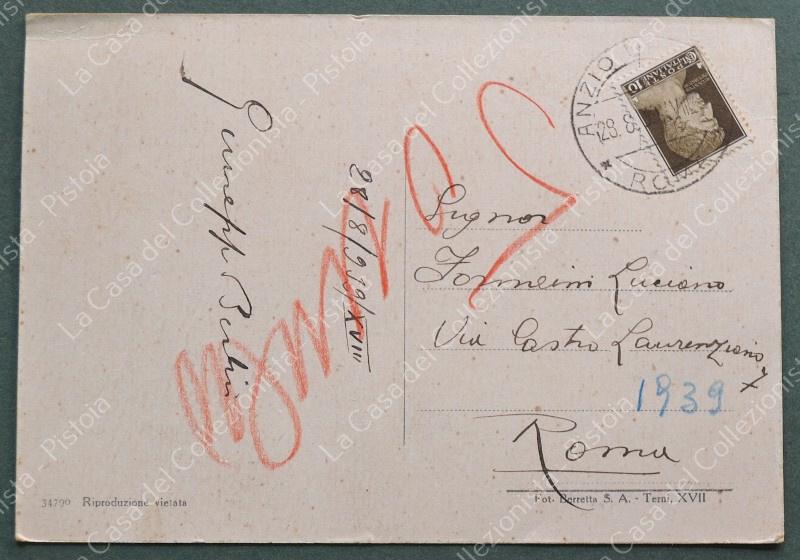 28/8/939/XVIII
ANZIO
ROMA
28. 8
POSTE
ITALIANE 10
Signor
Luciano
Via Castro Laurenziano
7
1939
Roma
34790 Riproduzione vietata
Fot. Berretta S. A. - Terni, XVII
La Casa del Collezionista - Pistoia